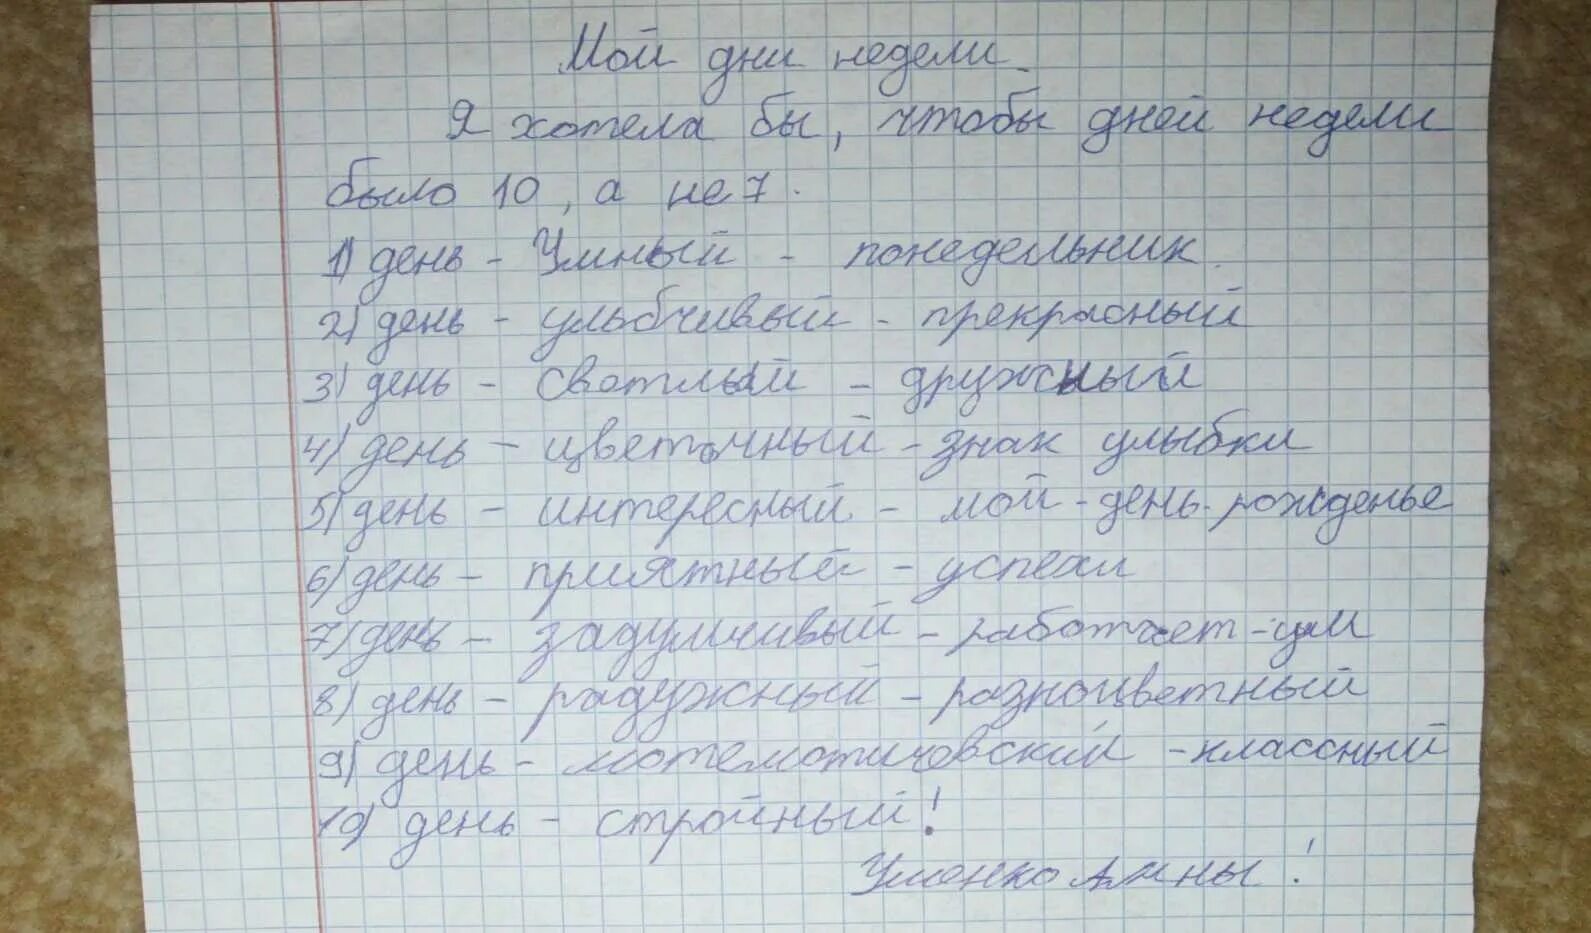 Мой дни недели
Я хотела бы, чтобы дней недели
было 10, а не 7.
1) день - Умный - понедельник.
2) день - улыбчивый - прекрасный
3) день - светлый - дружный
4) день - цветочный - знак улыбки
5) день - интересный - мой - день - рожденье
6) день - приятный - успехи
7) день - задумчивый - работает - ум
8) день - радужный - разноцветный
9) день - математический - классный
10) день - стройный!
Анны!